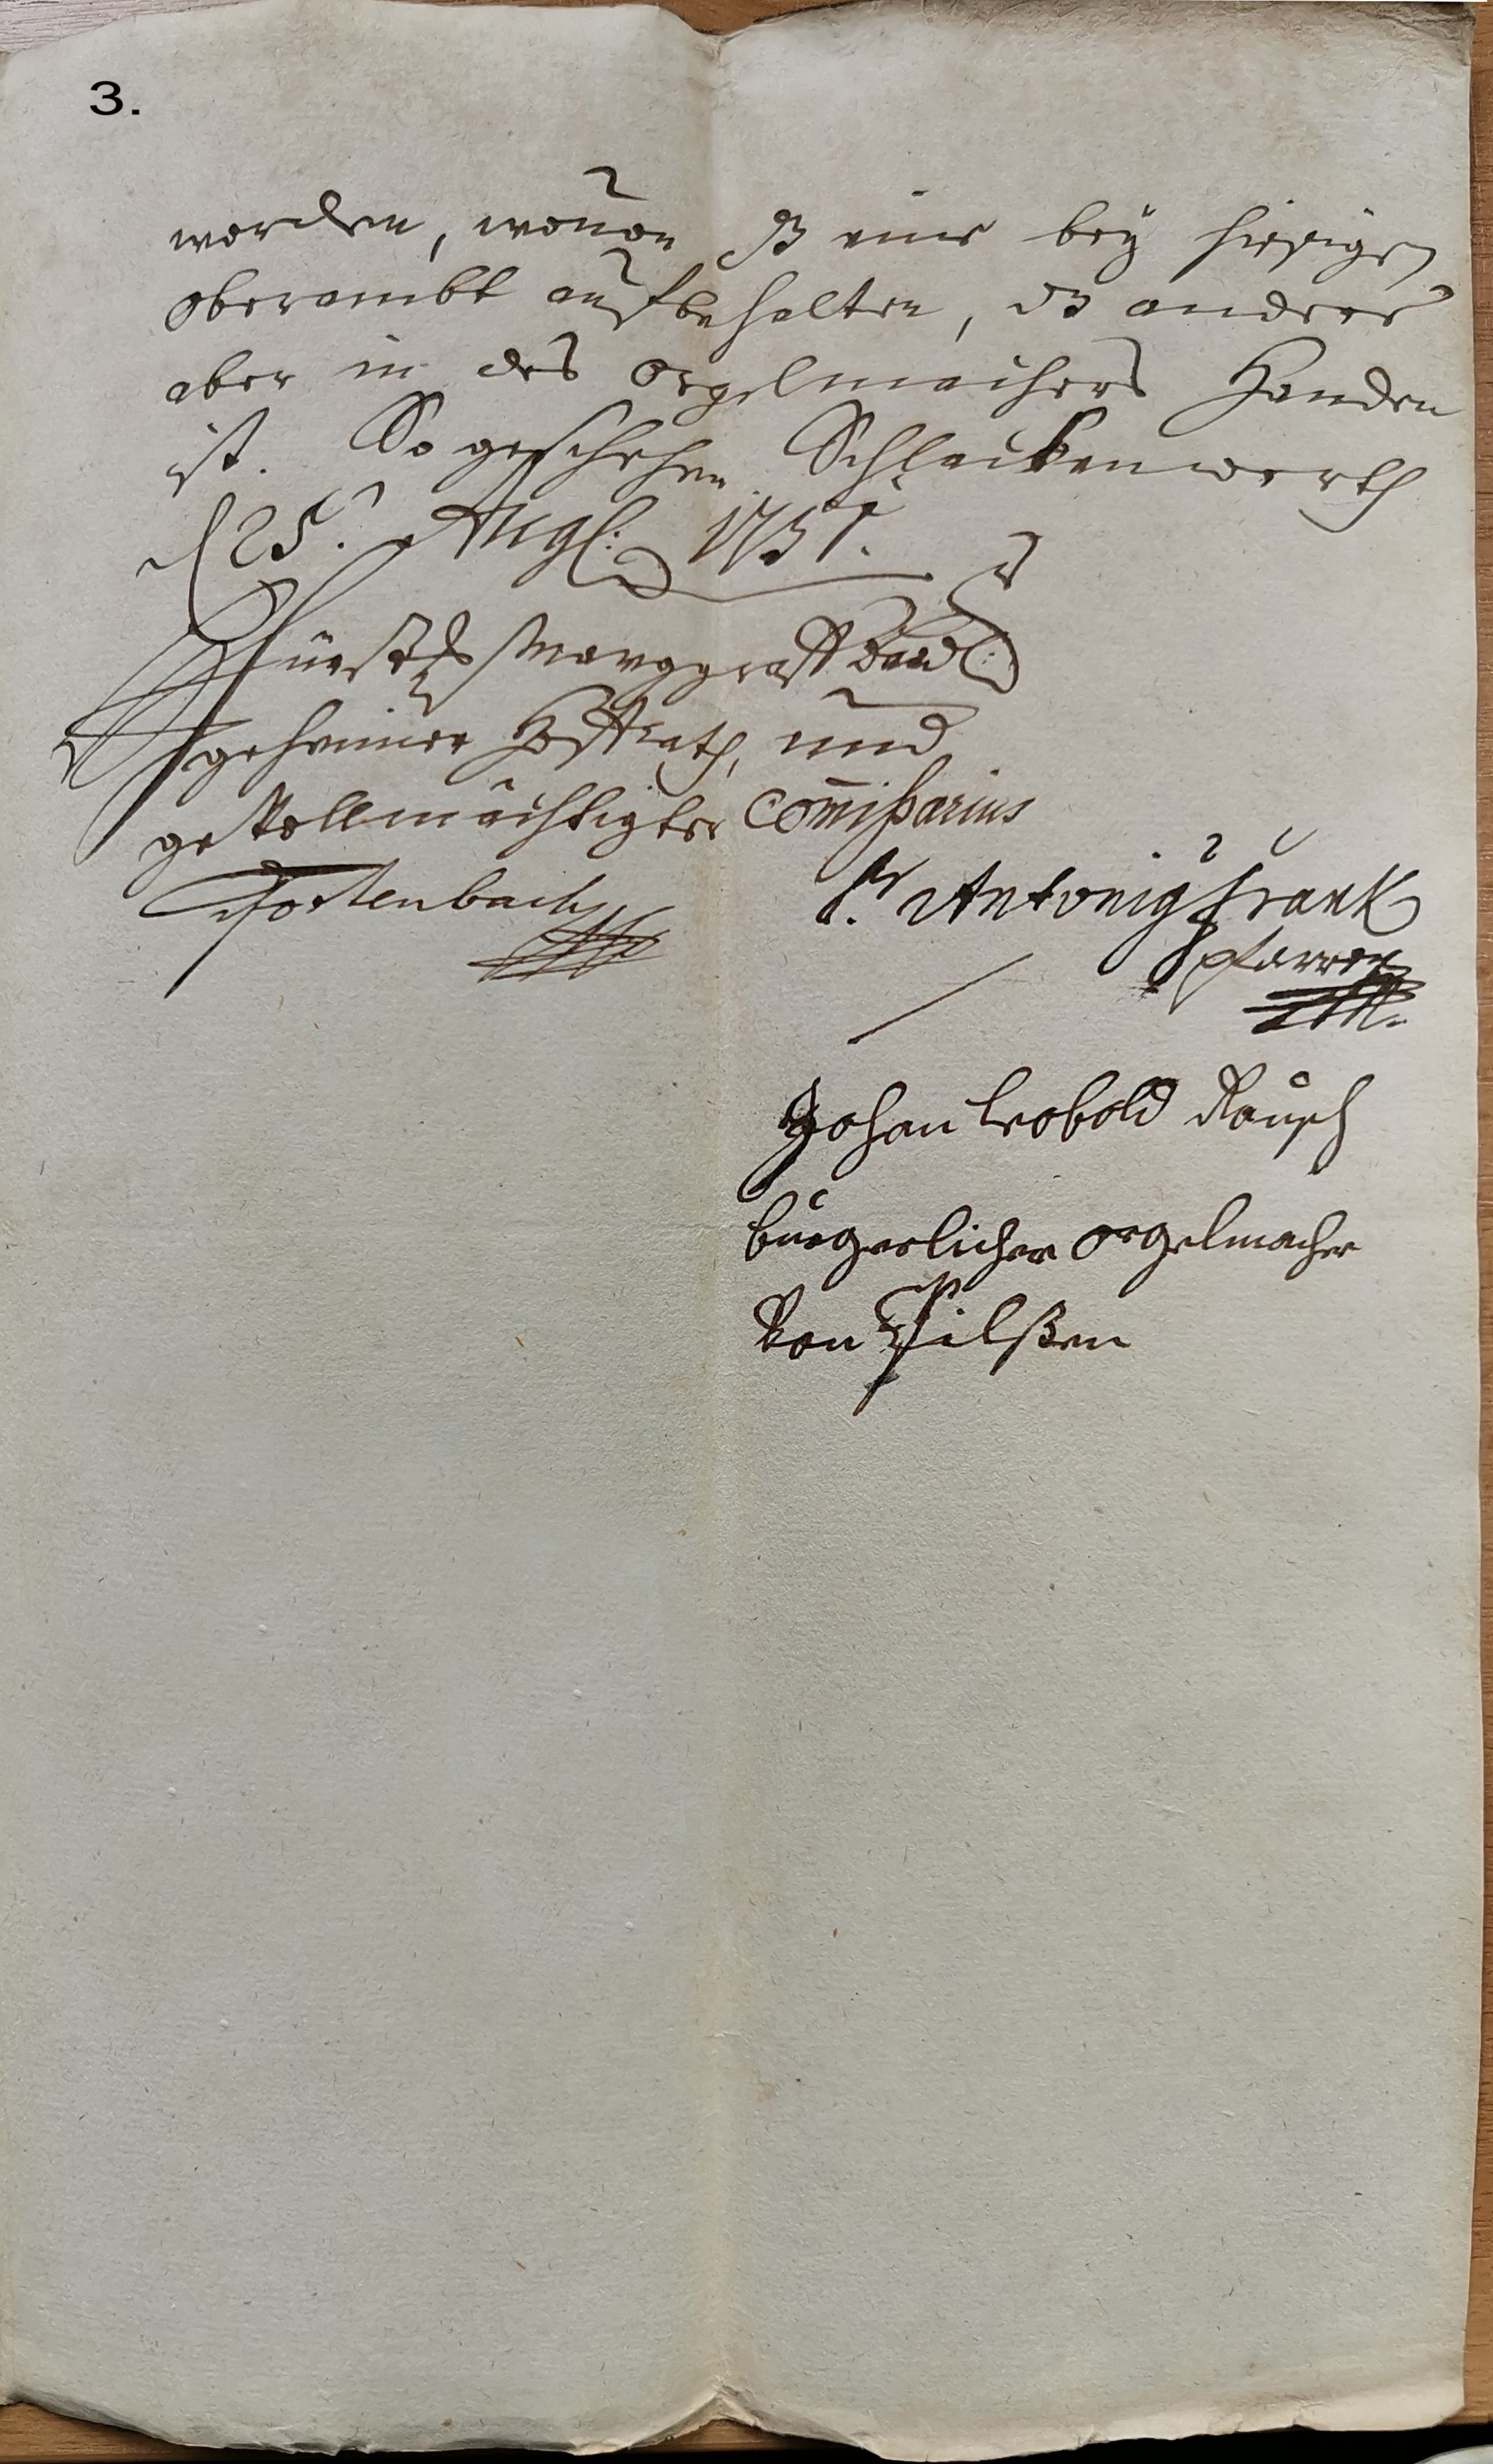 3.
worden, wouon ds eine bey hiesigen
Oberambt aufbehalten, ds andere
aber in des Orgelmachers Handen
ist. So geschehen Schlackenwerth
d 25. Aug: 1751.
Fürstl: Marggraff Baad:
geheimer Hoffrath, und
geVollmächtigter Com̄ißarius
P. Antoni Frank
Pfarrer
Johan Leobold Rausch
bürgerlicher Orgelmacher
Von Pilßen